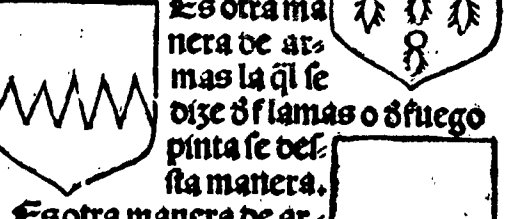 Es otra ma
nera de ar⸗
mas la q̃l se
dize d̕ flamas o d̕ fuego
pinta se des⸗
sta manera.
Es otra manera de ar⸗